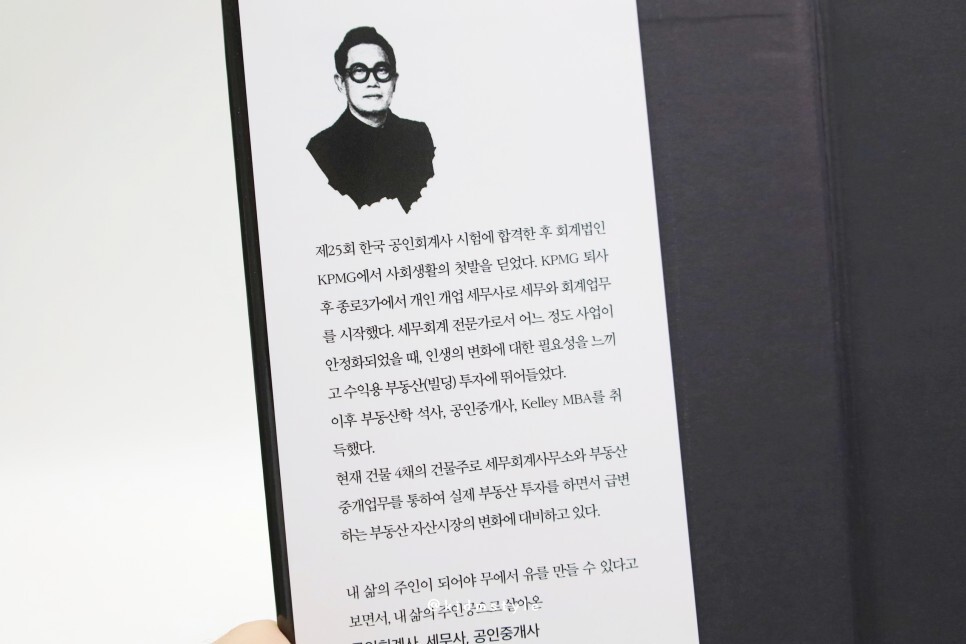 제25회 한국 공인회계사 시험에 합격한 후 회계법인
KPMG에서 사회생활의 첫발을 딛었다. KPMG 퇴사
후 종로3가에서 개인 개업 세무사로 세무와 회계업무
를 시작했다. 세무회계 전문가로서 어느 정도 사업이
안정화되었을 때, 인생의 변화에 대한 필요성을 느끼
고 수익용 부동산(빌딩) 투자에 뛰어들었다.
이후 부동산학 석사, 공인중개사, Kelley MBA를 취
득했다.
현재 건물 4채의 건물주로 세무회계사무소와 부동산
중개업무를 통하여 실제 부동산 투자를 하면서 급변
하는 부동산 자산시장의 변화에 대비하고 있다.
내 삶의 주인이 되어야 무에서 유를 만들 수 있다고
보면서, 내 삶의 주인공으로 살아온
공인회계사, 세무사, 공인중개사